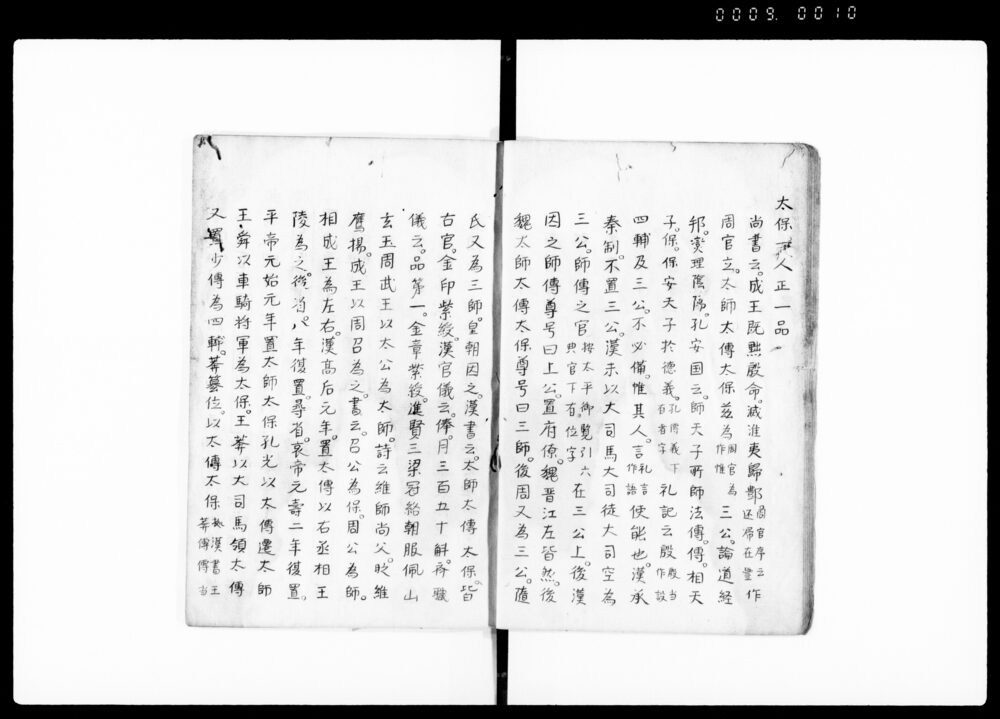 0009. 0010
太保一人正一品
尚書云。成王既黜殷命。滅淮夷歸鄷周官序云作还归在豊
周官立。太師太傅太保茲為周官為作惟三公。論道経
邦。変理陰陽。孔安国云。師天子所師法傅。傅。相天
子。保。保安天子於德義。孔傳義下有者字礼記云。殷殷当作設
四輔及三公。不必備。惟其人。言礼言作語使能也。漢承
秦制。不置三公。漢末以大司馬大司徒大司空為
三公。師傅之官按太平御覧引六典官下有位字在三公上。後漢
因之師傅尊号曰上公。置府僚。魏晋江左皆然。後
魏太師太傅太保尊号曰三師。後周又為三公。隨
氏又為三師。皇朝因之。漢書云。太師太傅太保。皆
古官。金印紫綬。漢官儀云。俸。月三百五十斛。齊職
儀云。品第一。金章紫綬。進賢三梁冠絳朝服佩山
玄玉周武王以太公為太師。詩云維師尚父。時維
鷹揚。成王以周召為之。書云。召公為保。周公為師。
相成王為左右。漢高后元年。置太傅以右丞相王
陵為之。後省。八年復置。尋省。哀帝元壽二年復置。
平帝元始元年置太師太保孔光以太傅遷太師
王舜以車騎將軍為太保。王莽以大司馬領太傅
又置少傅為四輔。莽簒位。以太傅太保漢書王莽傳傅当